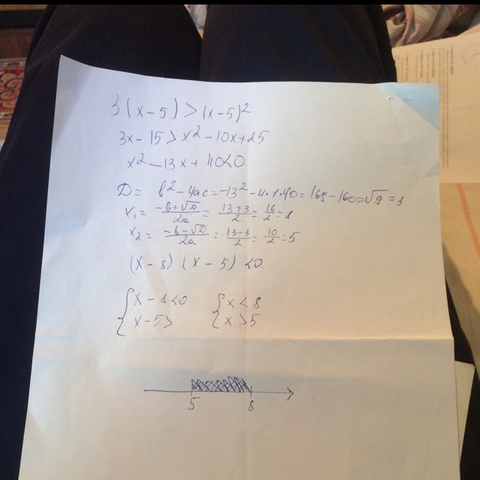 3(x-5)>(x-5)²
3x-15>x²-10x+25
x²-13x+40<0
D= b²-4ac=-13²-4·1·40=169-160=√9=3
x₁=\frac{-b+√D}{2a}=\frac{13+3}{2}=\frac{16}{2}=8
x₂=\frac{-b-√D}{2a}=\frac{13-3}{2}=\frac{10}{2}=5
(x-8)(x-5)<0
{x-8<0 {x<8
{x-5> {x>5
5 8